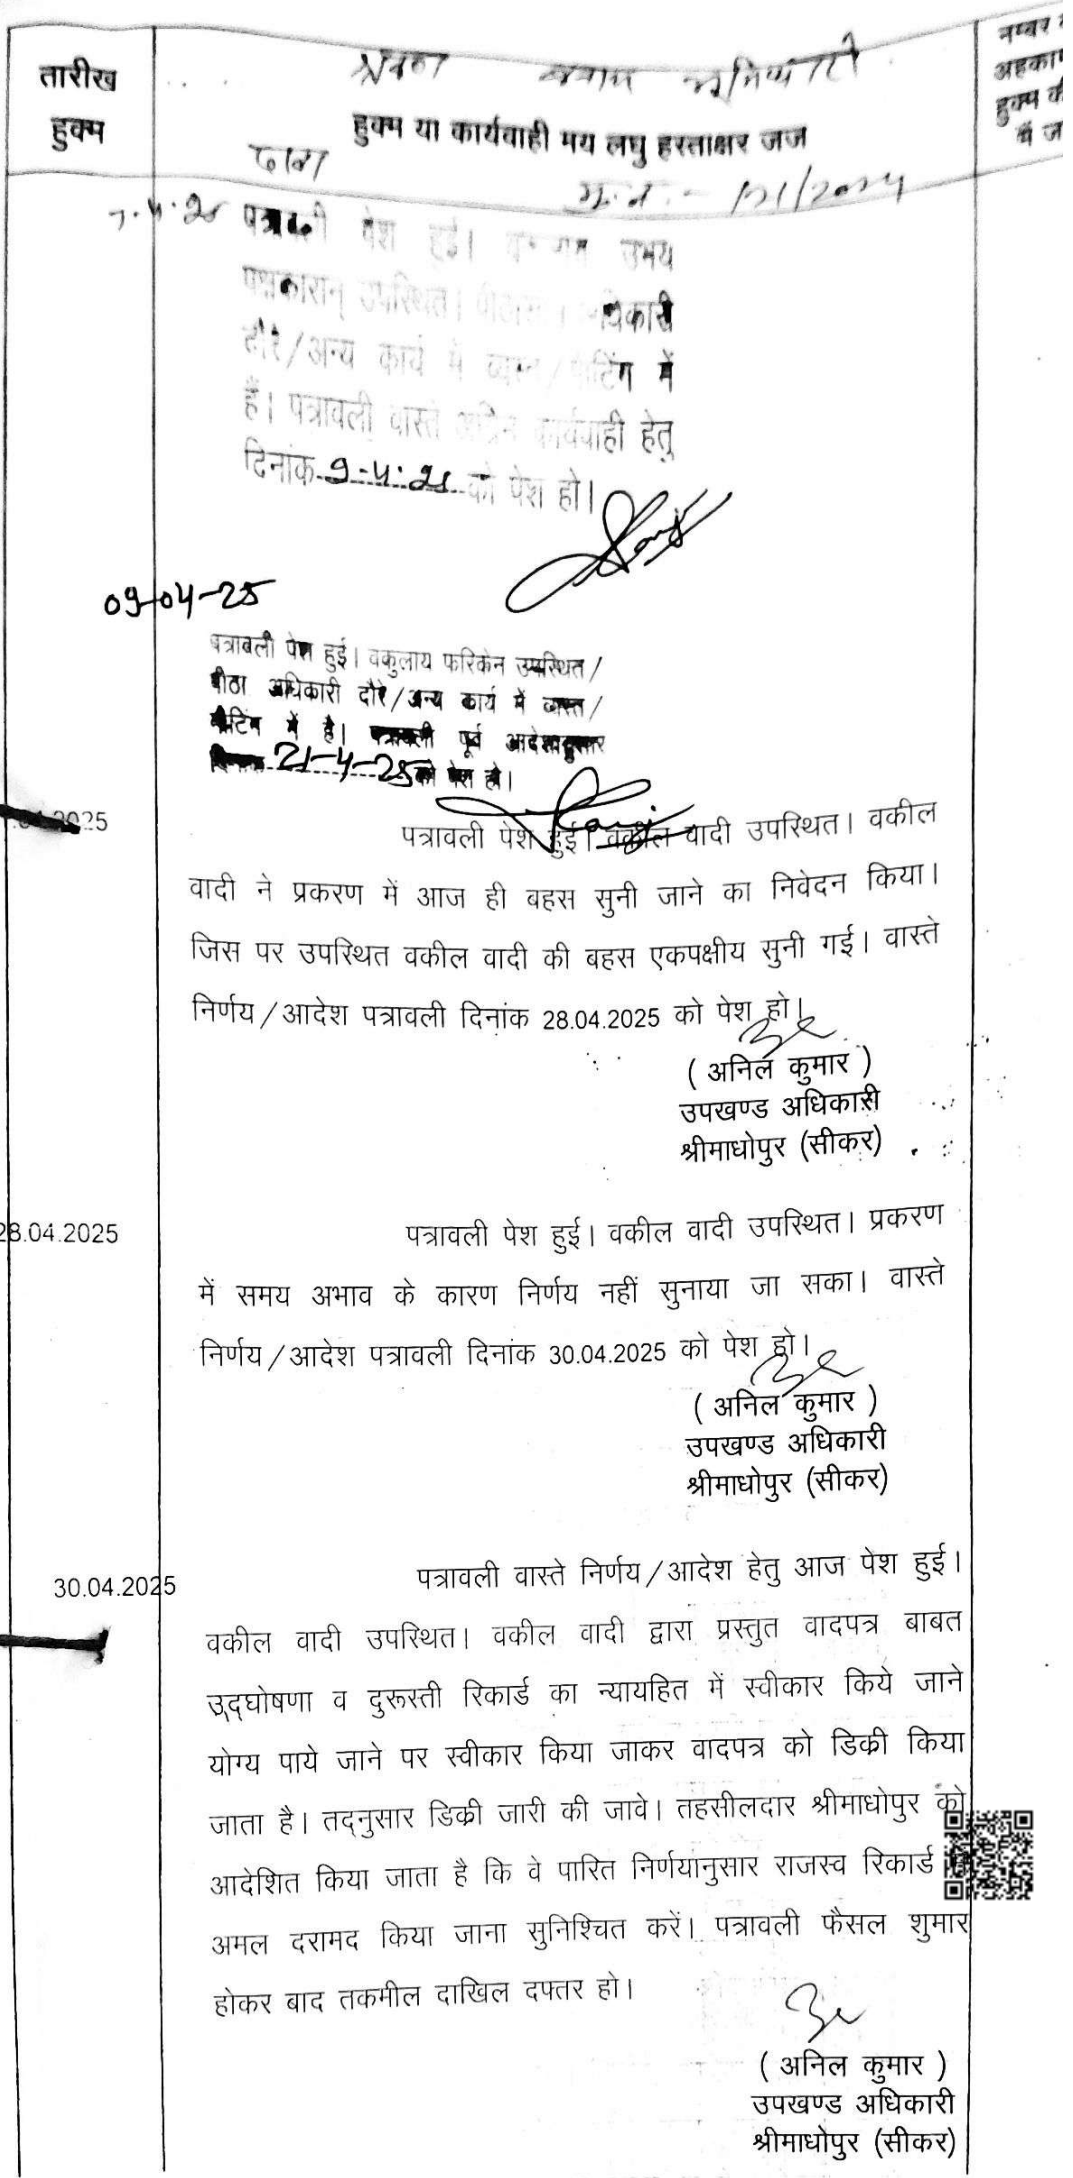 तारीख
हुक्म
श्रवण बनाम
हुक्म या कार्यवाही मय लघु हस्ताक्षर जज
दावा
मु.न. - 121/2024
नम्बर
अहकाम
हुक्म की
में ज
7.4.25 पत्रावली पेश हुई। उभय
पक्षकारान् उपस्थित।
दौरे/अन्य कार्य में व्यस्त/मीटिंग में
है। पत्रावली वास्ते अग्रिम कार्यवाही हेतु
दिनांक 9.4.25 को पेश हो।
09-04-25
पत्रावली पेश हुई। वकुलाय फरिकेन उपस्थित/
पीठा अधिकारी दौरे/अन्य कार्य में व्यस्त/
मीटिंग में है। पत्रावली पूर्व आदेशानुसार
दिनांक 21-4-25 को पेश हो।
पत्रावली पेश हुई। वकील वादी उपस्थित। वकील
वादी ने प्रकरण में आज ही बहस सुनी जाने का निवेदन किया।
जिस पर उपस्थित वकील वादी की बहस एकपक्षीय सुनी गई। वास्ते
निर्णय/आदेश पत्रावली दिनांक 28.04.2025 को पेश हो।
( अनिल कुमार )
उपखण्ड अधिकारी
श्रीमाधोपुर (सीकर)
28.04.2025
पत्रावली पेश हुई। वकील वादी उपस्थित। प्रकरण
में समय अभाव के कारण निर्णय नहीं सुनाया जा सका। वास्ते
निर्णय/आदेश पत्रावली दिनांक 30.04.2025 को पेश हो।
( अनिल कुमार )
उपखण्ड अधिकारी
श्रीमाधोपुर (सीकर)
30.04.2025
पत्रावली वास्ते निर्णय/आदेश हेतु आज पेश हुई।
वकील वादी उपस्थित। वकील वादी द्वारा प्रस्तुत वादपत्र बाबत
उद्घोषणा व दुरूस्ती रिकार्ड का न्यायहित में स्वीकार किये जाने
योग्य पाये जाने पर स्वीकार किया जाकर वादपत्र को डिक्री किया
जाता है। तद्नुसार डिक्री जारी की जावे। तहसीलदार श्रीमाधोपुर को
आदेशित किया जाता है कि वे पारित निर्णयानुसार राजस्व रिकार्ड
अमल दरामद किया जाना सुनिश्चित करें। पत्रावली फैसल शुमार
होकर बाद तकमील दाखिल दफ्तर हो।
( अनिल कुमार )
उपखण्ड अधिकारी
श्रीमाधोपुर (सीकर)